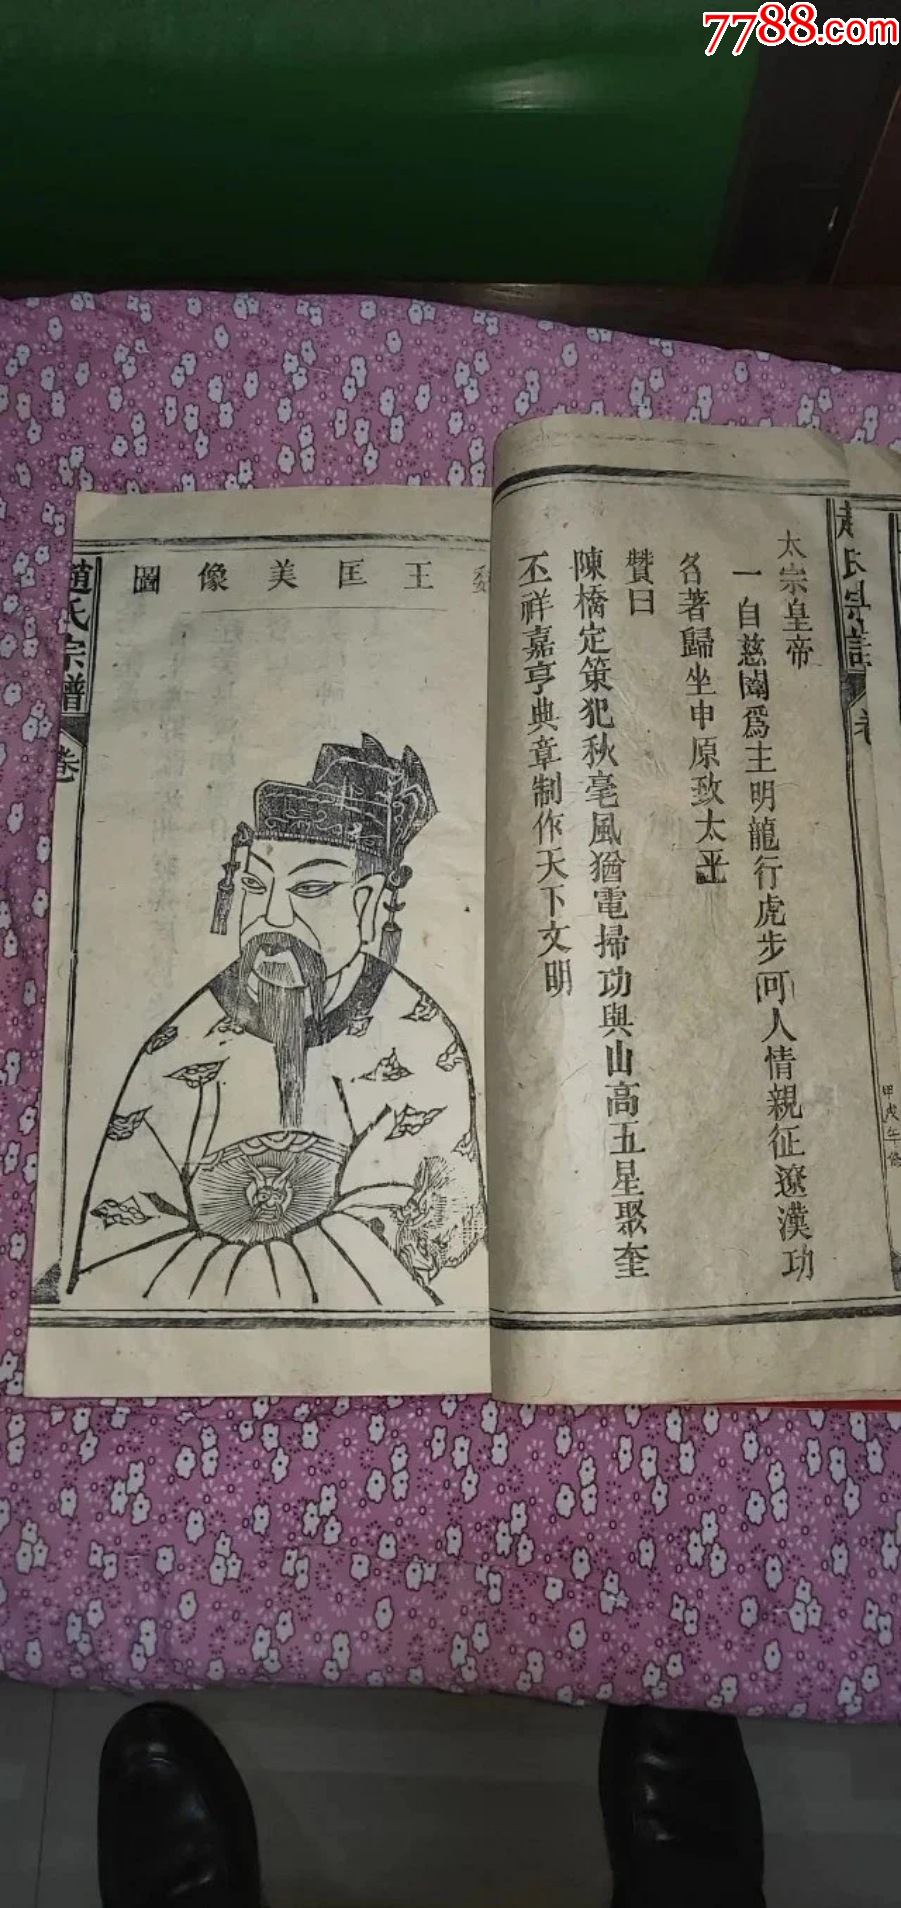 7788.com
太宗皇帝
一自慈闈爲主明龍行虎步可人情親征遼漢功
名著歸坐申原致太平
贊曰
陳橋定策犯秋毫風猶電掃功與山高五星聚奎
丕祥嘉亨典章制作天下文明
甲戌年修
王匡美像圖
趙氏宗譜
卷